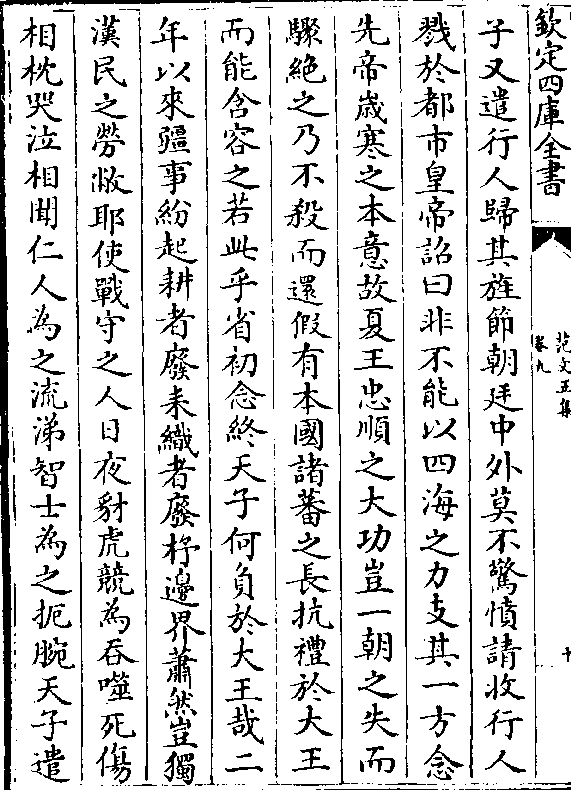 欽定四庫全書
范文正集
卷九
十
子又遣行人歸其旌節朝廷中外莫不驚憤請收行人
戮於都市皇帝詔曰非不能以四海之力支其一方念
先帝歲寒之本意故夏王忠順之大功豈一朝之失而
驟絶之乃不殺而還假有本國諸蕃之長抗禮於大王
而能含容之若此乎省初念終天子何負於大王哉二
年以來疆事紛起耕者廢耒織者廢杼邊界蕭然豈獨
漢民之勞敝耶使戰守之人日夜豺虎競為吞噬死傷
相枕哭泣相聞仁人為之流涕智士為之扼腕天子遣